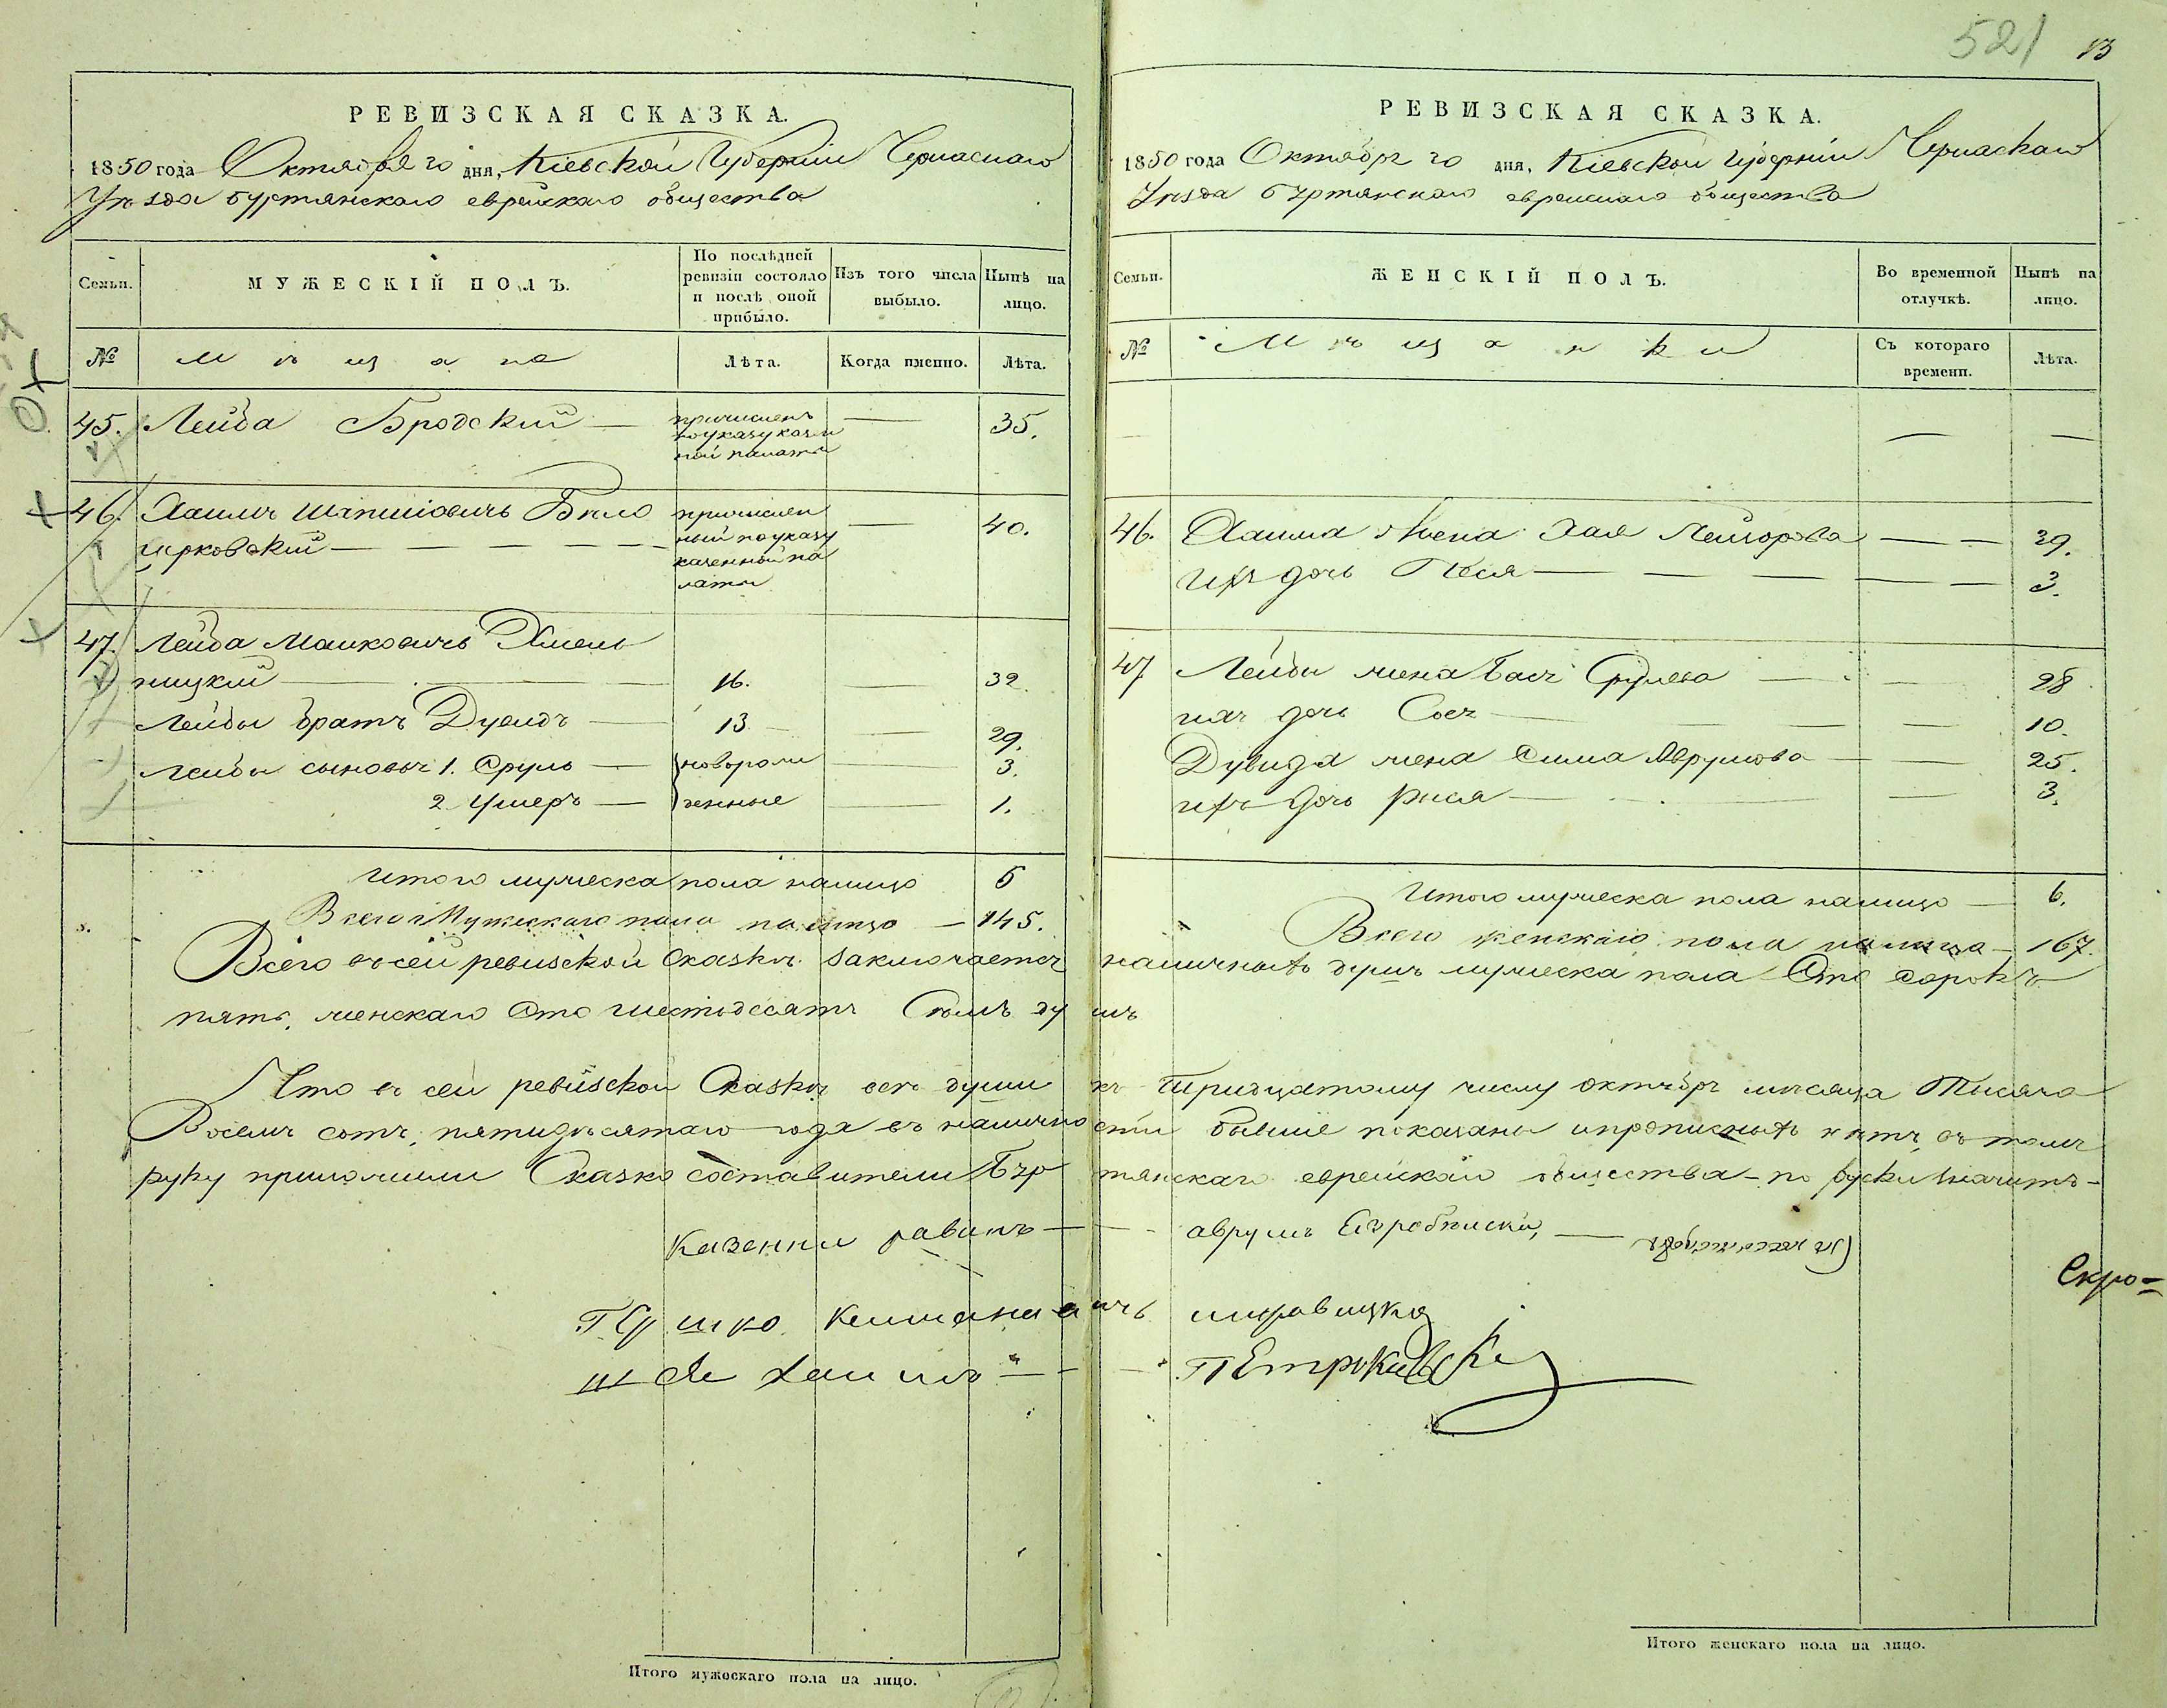 521 13
РЕВИЗСКАЯ СКАЗКА.
1850 года Октября 30 дня, Кіевской Губерніи Черкаскаго
Уѣзда Буртянскаго еврейскаго общества
Семьи.
МУЖЕСКІЙ ПОЛЪ.
По послѣдней ревизіи состояло и послѣ оной прибыло.
Изъ того числа выбыло.
Нынѣ на лицо.
№
Мѣщане
Лѣта.
Когда именно.
Лѣта.
45. Лейба Бродский — причисленъ — 35.
по указу казен
ной палаты
46. Хаимъ Шапшіовичъ Бѣло причислен — 40.
церковский — ный по указу
казенной па
латы
47. Лейба Машковичъ Хмель
ницкій — 16. — 32.
Лейбы братъ Дувидъ — 13 — 29.
Лейбы сыновья 1. Сруль — новорож — 3.
2 Умеръ — денные — 1.
Итого мужеска пола налицо 6
Всего Мужескаго пола налицо — 145.
РЕВИЗСКАЯ СКАЗКА.
1850 года Октября 30 дня, Кіевской Губерніи Черкаскаго
Уѣзда Буртянскаго еврейскаго общества
Семьи.
ЖЕНСКІЙ ПОЛЪ.
Во временной отлучкѣ.
Нынѣ на лицо.
№
Мѣщанки
Съ котораго времени.
Лѣта.
46. Хаима жена Хая Лейзорова — — 39.
ихъ дочь Песя — — 3.
47 Лейбы жена Бася Срулева — — 28
ихъ дочь Сося — — 10.
Дувида жена Сима Аврумова — — 25.
ихъ дочь Рися — — 3.
Итого мужеска пола налицо — 6.
Всего женскаго пола налицо — 167.
Всего въ сей ревизской Сказкѣ заключается наличныхъ душъ мужеска пола Сто сорокъ
пять, женскаго Сто шестьдесятъ Семь душъ
Что въ сей ревизской Сказкѣ всѣ души къ тридцатому числу октября мѣсяца Тисяча
Восемъ сотъ, пятидесятаго года въ наличности бывшіе показаны и прописныхъ нѣтъ, въ томъ
руку приложили Сказко составители Бур тянскаго еврейскаго общества — по руски значитъ —
Казенни равинъ — аврумъ
Хаимъ — — Петриковски
Скрѣ=
Итого мужескаго пола на лицо.
Итого женскаго пола на лицо.